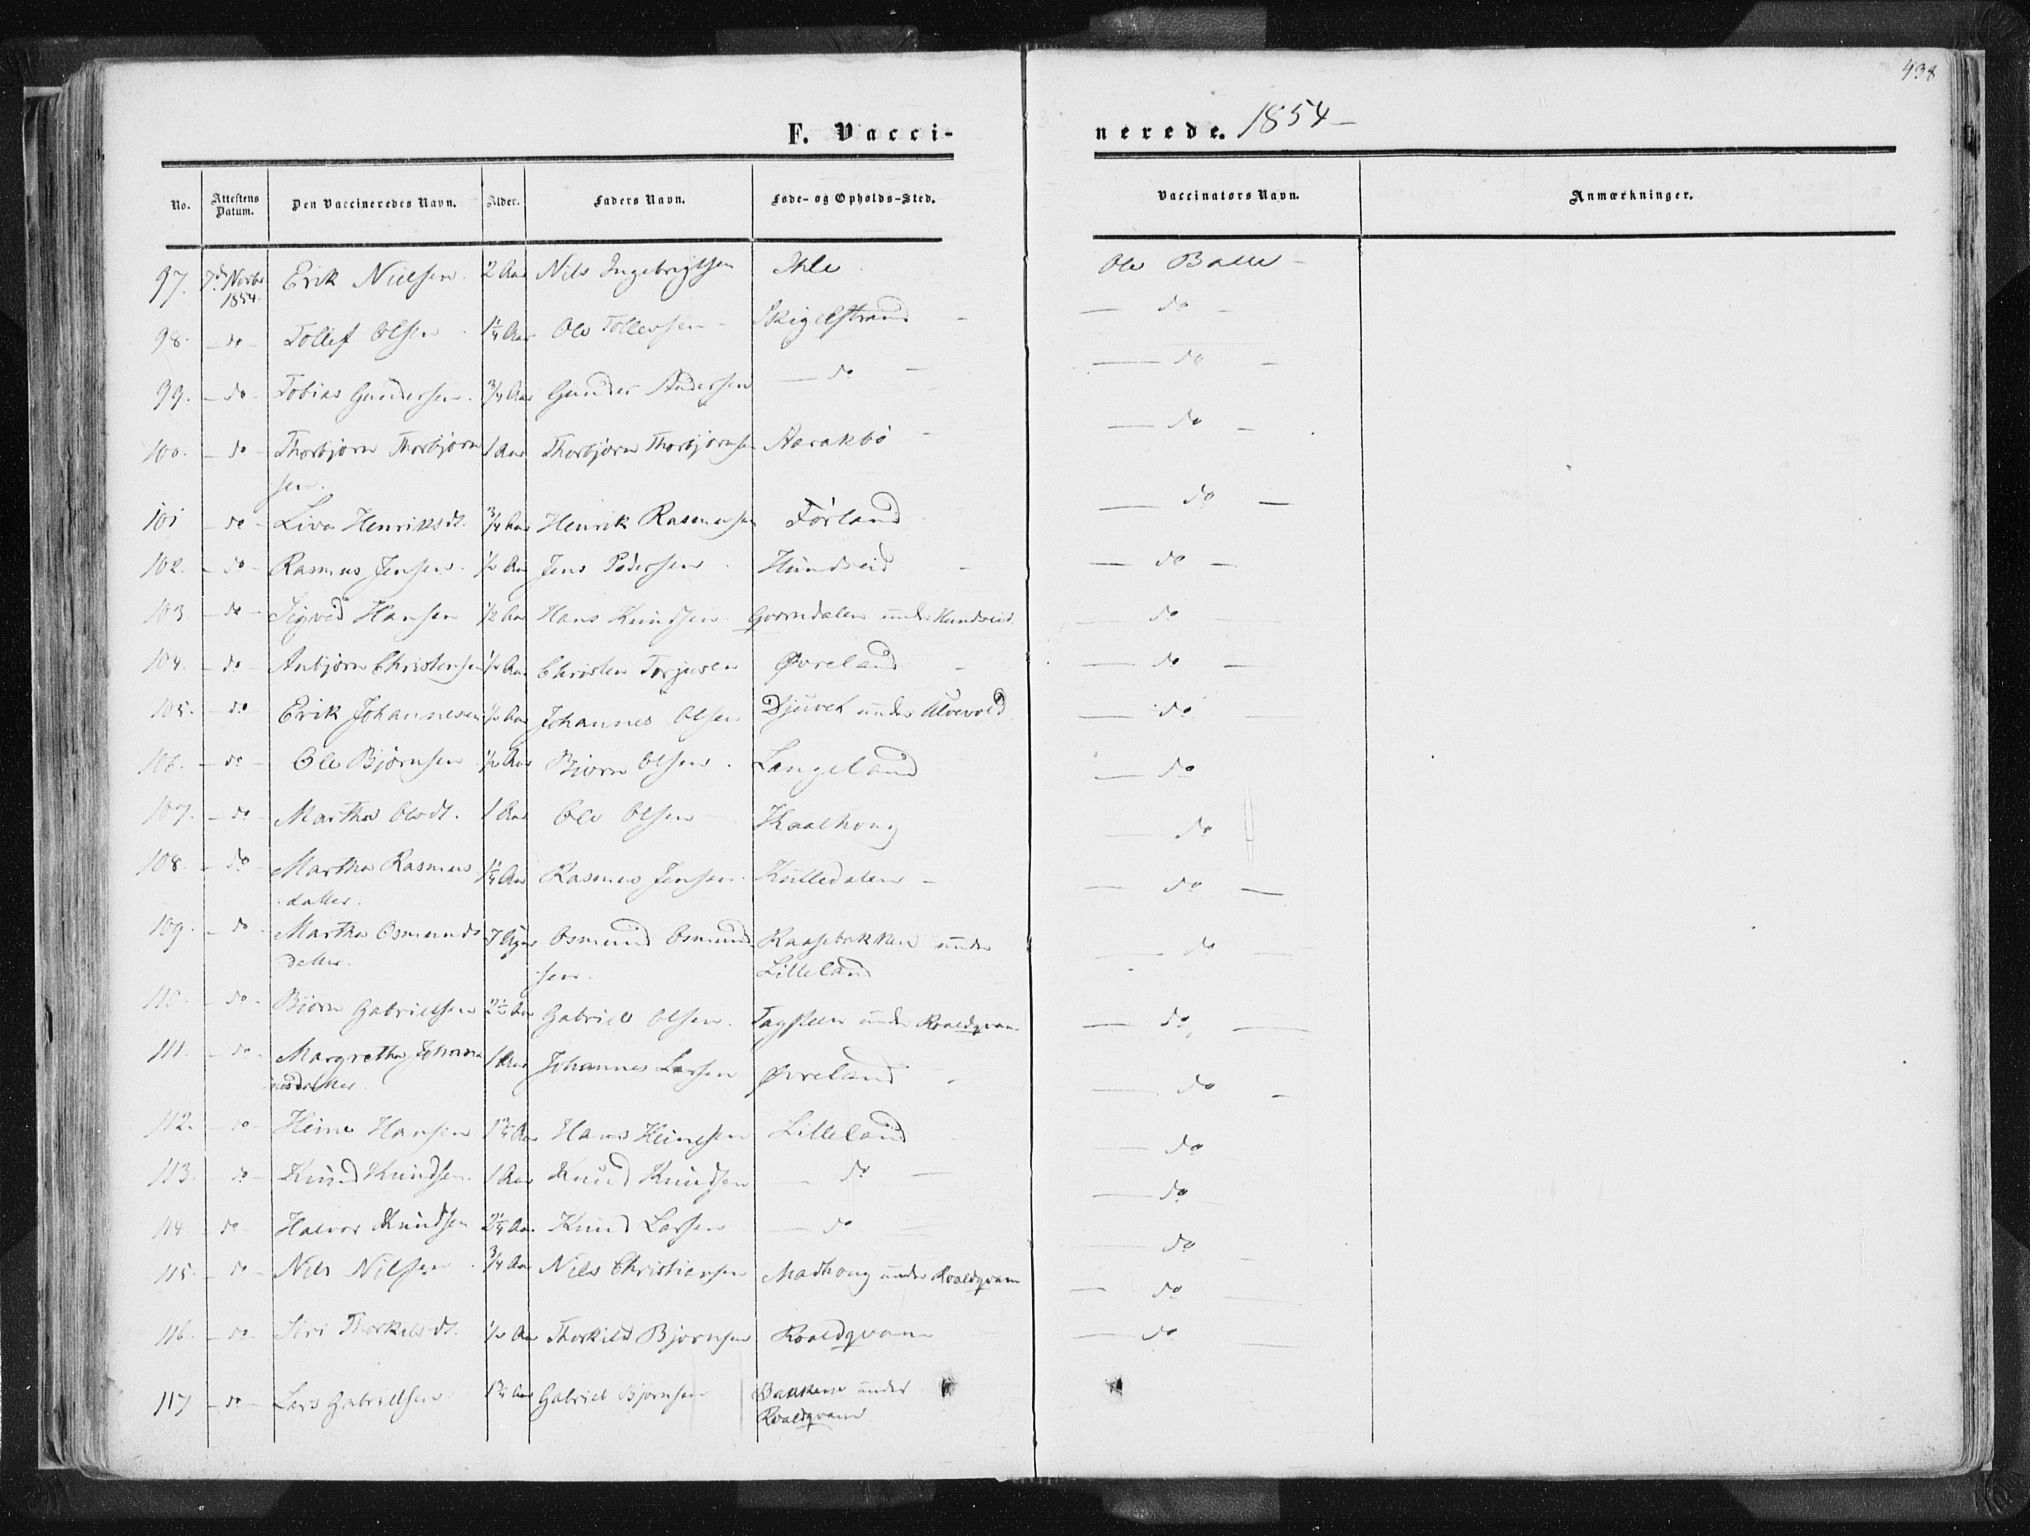 438
F. Vacci-nerede. 1854-
No. Attestens Datum. Den Vaccineredes Navn. Alder. Faders Navn. Føde- og Opholds-Sted. Vaccinators Navn. Anmærkninger.
97. 7d Novbr 1854. Erik Nielsen. 2 Aar Nils Ingebrigtsen Ihle Ole -
98. - do - Tollef Olsen 1¼ Aar Ole Tollevsen - Skigelstrand - - do -
99. - do - Tobias Gundersen. ¾ Aar Gunder Andersen - do - - do -
100. - do - Thorbjørn Thorbjørn 1 Aar Thorbjørn Thorbjørnsen Aarakbø - - do -
sen.
101 - do - Liva Henriksdt. ¾ Aar Henrik Rasmussen Førland - do -
102. - do - Rasmus Jensen. ½ Aar Jens Pedersen Hundseid - - do -
103 - do - Sigved Hansen ½ Aar Hans Knudsen under Hundseid - do -
104. - do - Anbjørn Christensen ½ Aar Christen Torjusen Øvreland - - do -
105. - do - Erik Johannesen ½ Aar Johannes Olsen Djuvet under - do
106. - do - Ole Bjørnsen ½ Aar Biørn Olsen. Langeland - do
107. - do - Martha Olsdt. 1 Aar Ole Olsen - Kaalhoug - do
108. - do - Martha Rasmus 1¼ Aar Rasmus Jensen. Kulledalen - - do -
datter.
109. - do - Martha Osmunds 7 Osmund Osmund Raasebakken under - do -
datter. sen. Lilleland
110. - do - Biørn Gabrielsen 2½ Aar Gabriel Olsen. under Roaldqvam - do -
111. - do - Margretha Johan 1 Aar Johannes Larsen Øvreland - - do -
nesdatter.
112. - do - Heine Hansen 1¾ Aar Hans Heinesen Lilleland - do
113. - do - Knud Knudsen. 1 Aar Knud Knudsen - do - - do
114. - do - Halvor Knudsen 2¼ Aar Knud Larsen - do - - do -
115. - do - Nils Nilsen. ¾ Aar Nils Christiansen Madhoug under Roaldqvam - do -
116. - do - Siri Thorkilsdt. ½ Aar Thorkild Bjørnsen Roaldqvam - do -
117 - do - Lars Gabrielsen 1¾ Aar Gabriel Bjørnsen Bakken under
Roaldqvam